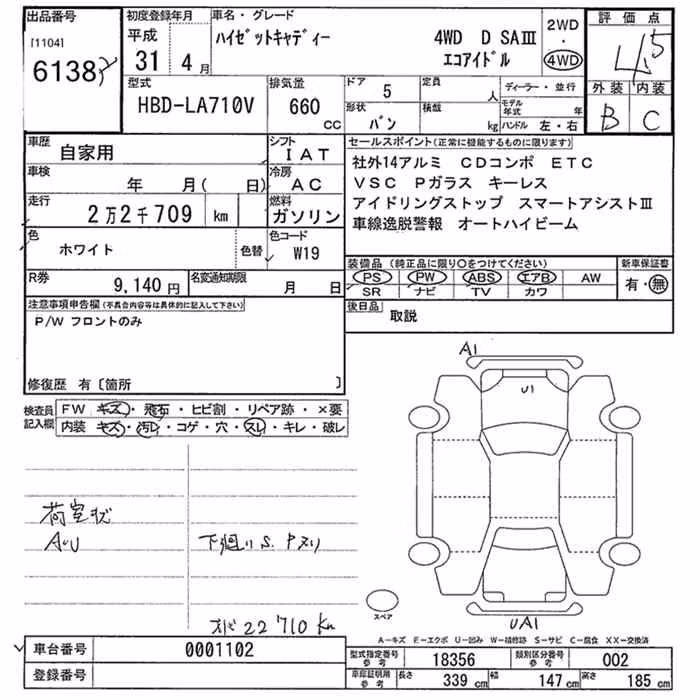 出品番号
[1104]
6138
初度登録年月
平成
31 4月
車名・グレード
ハイゼットキャディー
4WD D SAⅢ
エコアイドル
2WD
・
4WD
評価点
4.5
外装 内装
B C
型式
HBD-LA710V
排気量
660
CC
ドア 5
形状 バン
定員 人
積載 kg
ディーラー・並行
モデル年式 年
ハンドル 左・右
車歴
自家用
シフト
IAT
車検
年 月( 日)
冷房
AC
走行
2万2千709 km
燃料
ガソリン
色
ホワイト
色替
色コード
W19
R券
9,140円
名変通知期限
月 日
セールスポイント(正常に機能するものに限ります)
社外14アルミ CDコンポ ETC
VSC Pガラス キーレス
アイドリングストップ スマートアシストⅢ
車線逸脱警報 オートハイビーム
装備品 (純正品に限り○をつけてください)
PS PW ABS エアB AW
SR ナビ TV カワ
新車保証書
有・無
後日品
取説
注意事項申告欄(不具合内容等は具体的に記入して下さい)
P/W フロントのみ
修復歴 有〔箇所 〕
検査員記入欄
FW キズ・飛石・ヒビ割・リペア跡・×要
内装 キズ・汚レ・コゲ・穴・スレ・キレ・破レ
荷室状
AU
下廻り S. Pヌリ
22710 Km
A1
U1
UA1
スペア
A-キズ E-エクボ U-凹み W-補修跡 S-サビ C-腐食 XX-交換済
車台番号
0001102
登録番号
型式指定番号
参考
18356
類別区分番号
参考
002
車庫証明用
参考
長さ 339 cm
幅 147 cm
高さ 185 cm